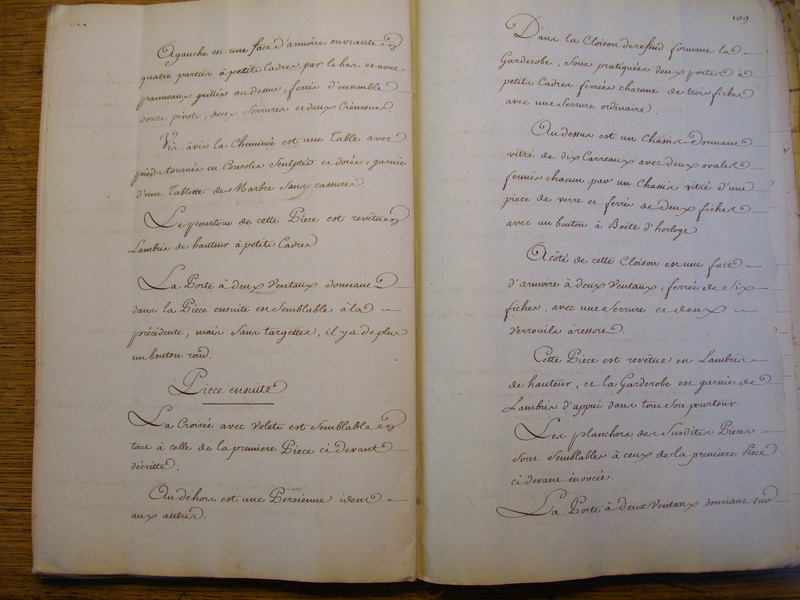 A gauche est une face d'armoire ouvrante en
quatre parties à petits Cadres par le bas et avec
panneaux grillés au dessus, ferrés d'ensemble
douze pivots, deux Serrures et deux Crémones
Vis-àvis la Cheminée est une Table avec
pieds tournés en Consoles Sculptés et dorés, garnie
d'une Tablette de Marbre Sans cassures
Le pourtour de cette Piece est revêtue en
Lambris de hauteur à petits Cadres
La Porte à deux Ventaux donnant
dans la Piece ensuite est Semblable à la
précédente, mais Sans targettes, il y a de plus
un bouton rond.
Piece ensuite
La Croisée avec Volets est Semblable en
tout à celle de la premiere Piece ci devant
décritte.
Au dehors est une Persienne idem
aux autres.
109
Dans la Cloison de refend formant la
Garderobe, Sont pratiquées deux portes à
petits Cadres ferrées chacune de trois fiches
avec une Serrure ordinaire.
Au dessus est un Chassis dormant
vitré de dix Carreaux avec deux ovales
fermés chacun par un Chassis vitré d'une
piece de verre et ferrés de deux fiches
avec un bouton à Boëte d'horloge
A côté de cette Cloison est une face
d'armoire à deux Ventaux, ferrée de Six
fiches, avec une Serrure et deux
Verrouils à ressort.
Cette Piece est revêtue en Lambris
de hauteur, et la Garderobe est garnie de
Lambris d'appui dans tout Son pourtour
Les planchers des Susdites Pieces
Sont Semblables à ceux de la premiere Piece
ci devant énoncée.
La Porte à deux Ventaux donnant sur